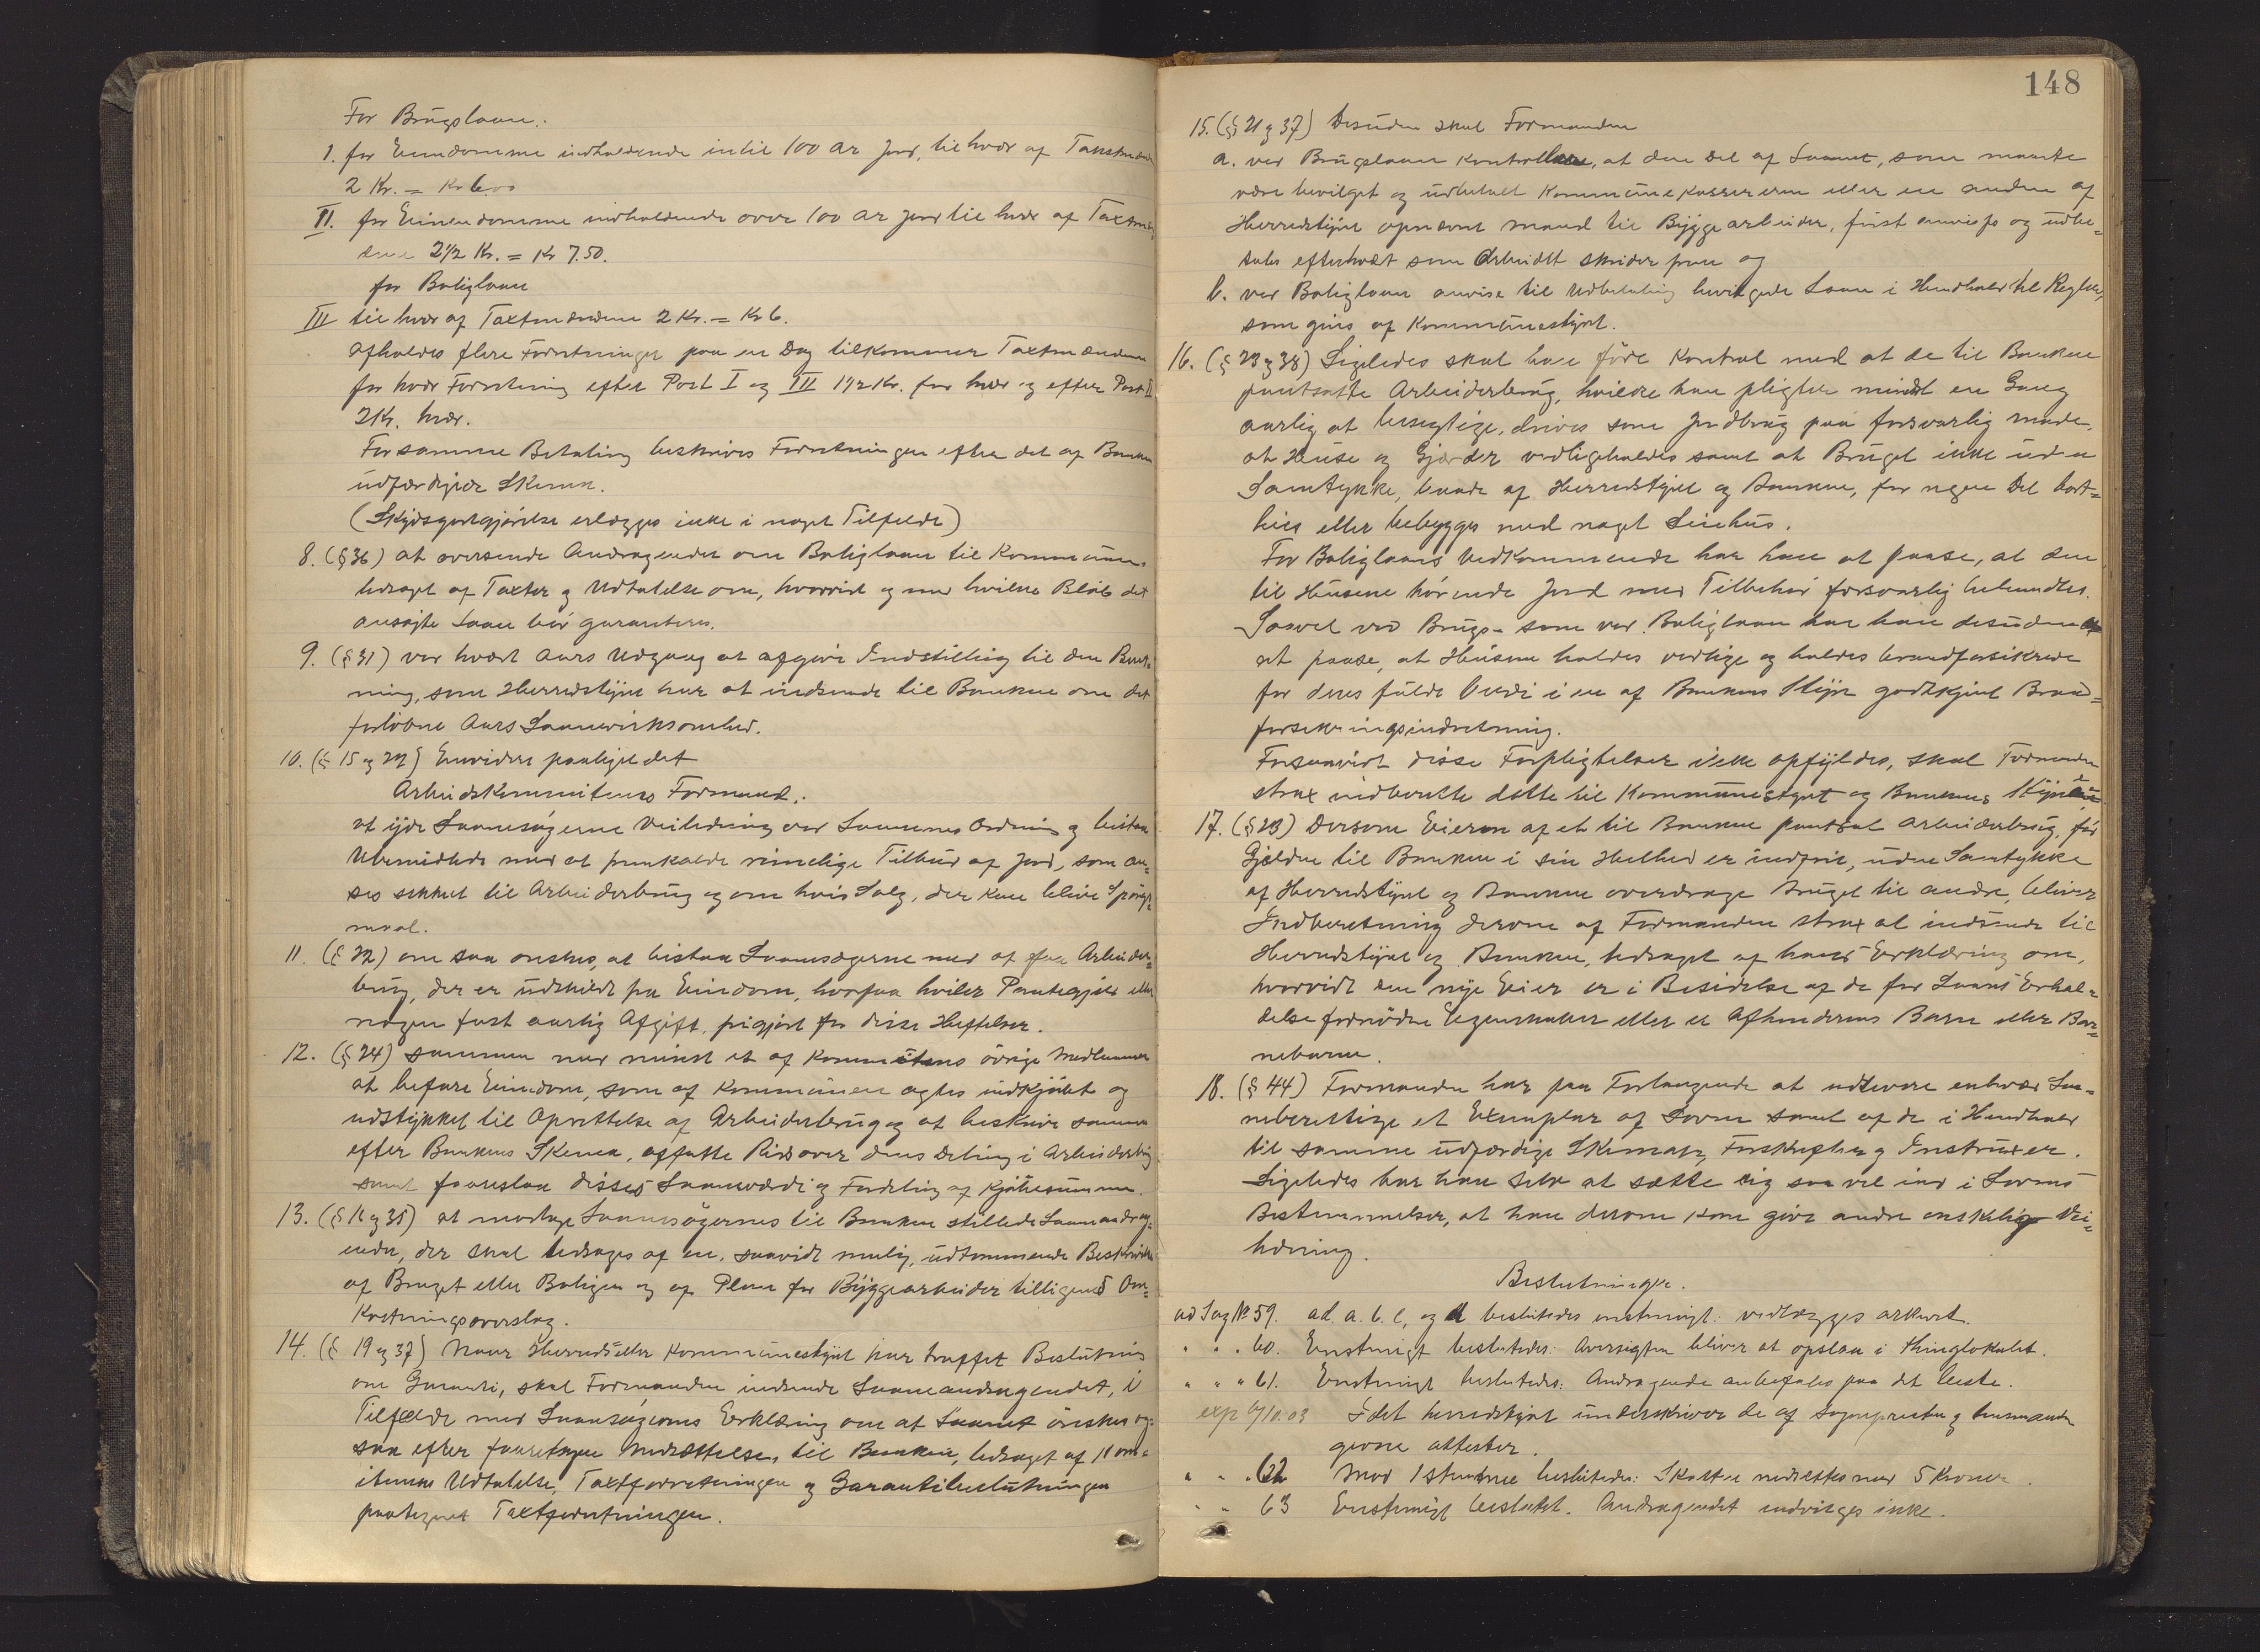 For Brugslaan.
1. for Eiendomme indholdende intil 100 ar Jord, til hver af Taxtmænd
2 Kr. = Kr 6.00
II. for Eiendomme indholdende over 100 ar Jord til hver af Taxtmæn-
dene 2 1/2 Kr. = Kr 7.50.
for Boliglaan
III til hver af Taxtmændene 2 Kr. = Kr 6.
Afholdes flere Forretninger paa en Dag tilkommer Taxtmændene
for hver Forretning efter Post I og III 1 1/2 Kr. for hver og efter Post II
2 Kr. hver.
For samme Betaling beskrives Forretningen efter det af Banken
udfærdigede Skema.
(Skydsgodtgjörelse erlægges ikke i noget Tilfelde)
8. (§ 36) at oversende Andragender om Boliglaan til Kommunen
ledsaget af Taxter og Udtalelse om, hvorvidt og med hvilke Beløb det
ansøgte Laan bör garanteres.
9. (§ 31) ved hvert Aars Udgang at afgive Indstilling til den Beret-
ning, som Herredstyret har at indsende til Banken om det
forløbne Aars Laanevirksomhed.
10. (§ 15 og 22) Emvidere paaligger det
Arbeidskommiteens Formand.
at yde Laanesøgerne Veiledning ved Laanenes Ordning og bistaa
Ubemidlede med at fremkalde rimelige Tilbud af Jord, som an-
ses skikket til Arbeiderbrug og om hvis Salg, der kan blive Spörgs-
maal.
11. (§ 22) om saa ønskes, at bistaa Laanesøgerne med at faa Arbeider-
brug, der er udskildt fra Eiendom, hvorpaa hviler Pantegjæld eller
nogen fast aarlig Afgift, frigjort for disse Heftelser.
12. (§ 24) sammen med mindst et af Kommiteens övrige Medlemmer
at befare Eiendom, som af Kommunen agtes indkjöbt og
udstykket til Oprettelse af Arbeiderbrug og at beskrive samme
efter Bankens Skema, opfatte Rids over dens Deling i Arbeiderbrug
samt foreslaa disses Laaneværdi og Fordeling af Kjöbesummen.
13. (§ 16 og 35) at modtage Laanesögernes til Banken stillede Laaneandrag-
ender, der skal ledsages af en, saavidt mulig, udtømmende Beskrivelse
af Bruget eller Boligen og af Plan for Byggearbeider tilligemed Om-
kostningsoverslag.
14. (§ 19 og 37) Naar Herreds eller Kommunestyret har truffet Beslutning
om Garanti, skal Formanden indsende Laaneandragendet, i
Tilfælde med Laansøgerens Erklæring om at Laanet ønskes og-
saa efter foretagen Nedsættelse, til Banken, ledsaget af Kom-
iteens Udtalelse, Taxtforretningen og Garantibeslutningen
paategnet Taxtforretningen.
148
15. (§ 21 og 37) Desuden skal Formanden
a. ved Brugslaan kontrollere, at den Del af Laanet, som maatte
være bevilget og udbetalt Kommunekassereren eller en anden af
Herredstyret opnævnt mand til Byggearbeider, först anvises og udbe-
tales efterhvert som Arbeidet skrider frem og
b. ved Boliglaan anvise til Udbetaling bevilgede Laan i Henhold til Regler,
som gives af Kommunestyret.
16. (§ 23 og 38) Ligeledes skal han före Kontrol med at de til Banken
pantsatte Arbeiderbrug, hvilke han pligter mindst en Gang
aarlig at besigtige, drives som Jordbrug paa forsvarlig maade,
at Huse og Gjerder vedligeholdes samt at Bruget ikke uden
Samtykke, baade af Herredstyret og Banken, for nogen Del bort-
leies eller bebygges med noget Leiehus.
For Boliglaans Vedkommende har han at paase, at den
til Husene hørende Jord med Tilbehör forsvarlig behandles.
Saavel ved Brugs- som ved Boliglaan har han desuden
at paase, at Husene holdes vedlige og holdes brandforsikrede
for deres fulde Verdi i en af Bankens Styre godkjent Brand-
forsikringsindretning.
Forsaavidt disse Forpligtelser ikke opfyldes, skal Formanden
strax indberette dette til Kommunestyret og Bankens Styre.
17. (§ 23) Dersom Eieren af et til Banken pantsat Arbeiderbrug, för
Gjælden til Banken i sin Helhed er indfriet, uden Samtykke
af Herredstyret og Banken overdrage Bruget til andre, bliver
Indberetning derom af Formanden strax at indsende til
Herredstyret og Banken, ledsaget af hans Erklæring om,
hvorvidt den nye Eier er i Besiddelse af de for Laans Erhol-
delse fornödne Egenskaber eller er Afhenderens Barn eller Bar-
nebarn.
18. (§ 44) Formanden har paa Forlangende at udlevere enhver Laa-
neberettige et Exemplar af Loven samt af de i Henhold
til samme udfærdige Skemaer, Forskrifter og Instruxer.
Ligeledes har han selv at sætte sig saa vel ind i Lovens
Bestemmelser, at han derom kan give andre ønskelig Vei-
ledning.
Beslutninger.
ad Sag № 59. ad a. b. c, og d besluttedes enstemigt: vedlægges arkivet.
" " " 60. Enstemigt besluttedes: Oversigten bliver at opslaa i Thinglokalet.
" " " 61. Enstemigt besluttedes: Andragende anbefales paa det beste.
exp 6/10.03 Idet herredstyret underskriver de af Sogneprest og lensmanden
givne attester.
" " " 62 Mod 1 stemme besluttedes: Skatten nedsættes med 5 Kroner.
" " 63 Enstemigt besluttet. Andragendet indvilges ikke.